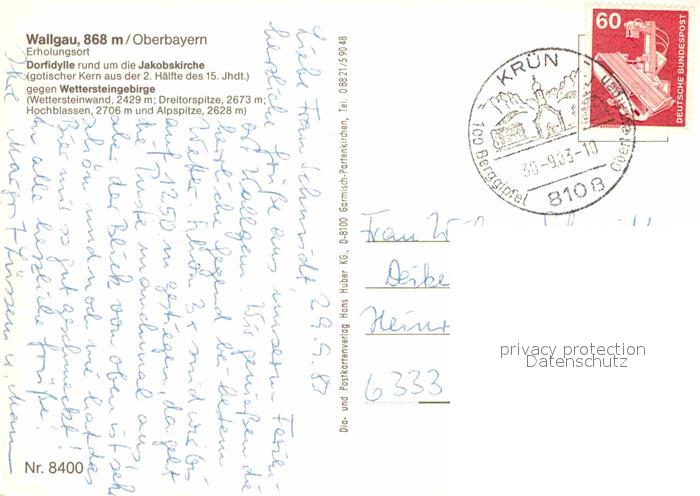 Wallgau, 868 m / Oberbayern
Erholungsort
Dorfidylle rund um die Jakobskirche
(gotischer Kern aus der 2. Hälfte des 15. Jhdt.)
gegen Wettersteingebirge
(Wettersteinwand, 2429 m; Dreitorspitze, 2673 m;
Hochblassen, 2706 m und Alpspitze, 2628 m)
Liebe Frau Schmidt, 29.9.83
herzliche Grüße aus unserem Ferien-
ort Wallgau. Wir genießen die
herrliche Gegend bei bestem
Wetter. Schon 3x sind wir bis
auf 1250 m gestiegen, da geht
die Puste manchmal aus,
aber der Blick von oben ist sehr
schön und noch nie hat das
Bier mir so gut geschmeckt!
An alle herzliche Grüße!
Ihre Margot u. Mann
Nr. 8400
Dia- und Postkartenverlag Hans Huber KG., D-8100 Garmisch-Partenkirchen, Tel. 08821/59048
60
DEUTSCHE BUNDESPOST
KRÜN
100 Berggipfel
30.-9.83-10
8108
Frau
Heinr
6333
privacy protection
Datenschutz